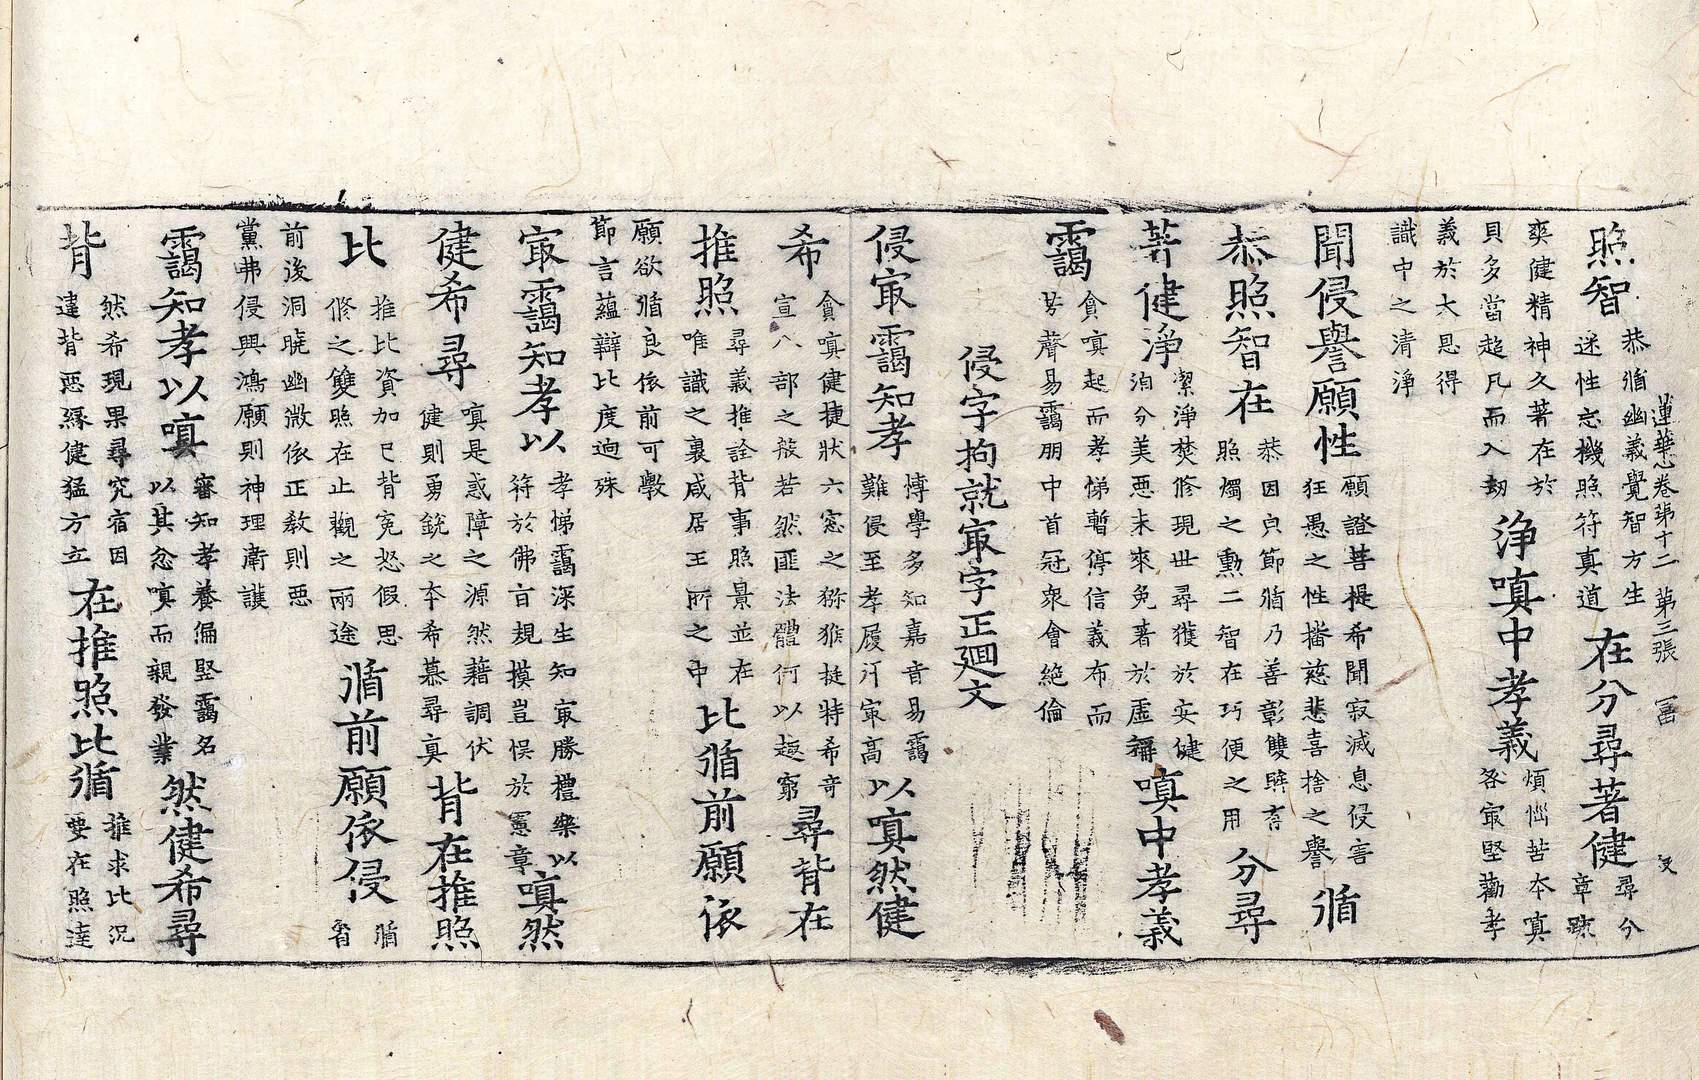 蓮華心卷第十二 第三張 富
照智
恭循幽義覺智方生
迷性忘機照符真道
在分尋著健
尋分
章疏
爽健精神久著在於
貝多當超凡而入刼
淨嗔中孝義
煩惱苦本嗔
咎㝡堅勸孝
義於大恩得
識中之清淨
聞侵譽願性
願證菩提希聞寂滅息侵害
狂愚之性播慈悲喜捨之譽
循
恭照智在
恭因貞節循乃善彰雙
照燭之勲二智在巧便之用
分尋
著健淨
潔淨焚修現世尋獲於安健
洎分美惡未來免著於虛
嗔中孝義
靄
貪嗔起而孝悌暫停信義布而
芳聲易靄朋中首冠衆會絕倫
侵字拘就㝡字正廻文
侵㝡靄知孝
博學多知嘉音易靄
難侵至孝履行㝡高
以嗔然健
希
貪嗔健捷狀六窓之猕猴挺特希奇
宣八部之般若然匪法體何以趣窮
尋背在
推照
尋義推詮背事照景並在
唯識之裏咸居王所之中
比循前願依
願欲循良依前可敷
節言蘊辯比度迥殊
㝡靄知孝以
孝悌靄深生知㝡勝禮樂以
符於佛言規摸豈悞於憲章
嗔然
健希尋
嗔是惑障之源然藉調伏
健則勇銳之本希慕尋真
背在推照
比
推比資加已背寃怒假思
修之雙照在止觀之兩途
循前願依侵
循
省
前後洞曉幽微依正教則惡
黨弗侵興鴻願則神理衛護
靄知孝以嗔
審知孝養偏堅靄名
以其忿嗔而親發業
然健希尋
背
然希現果尋究宿因
違背惡緣健猛方立
在推照比循
推求比況
要在照達